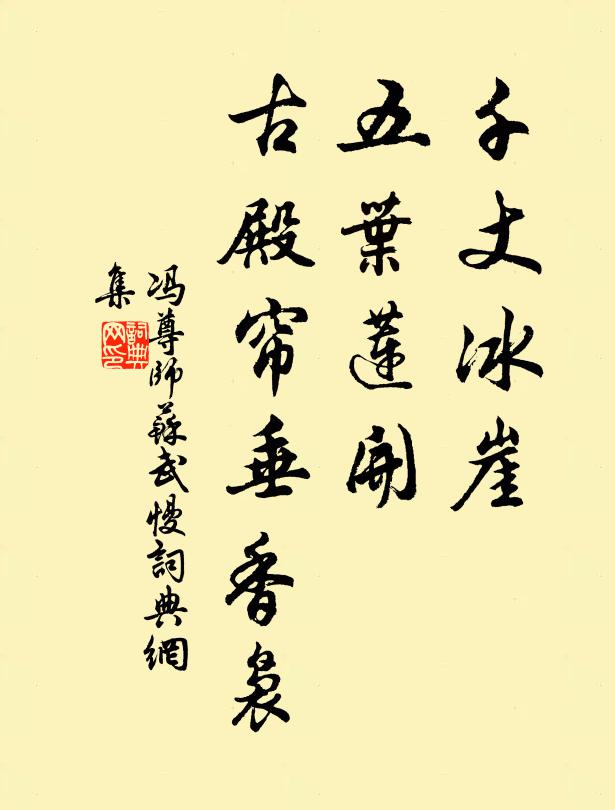 千丈冰崖
五葉蓮開
古殿帘垂香裊
冯尊師蘇武慢詞典網
集
詞典
网印